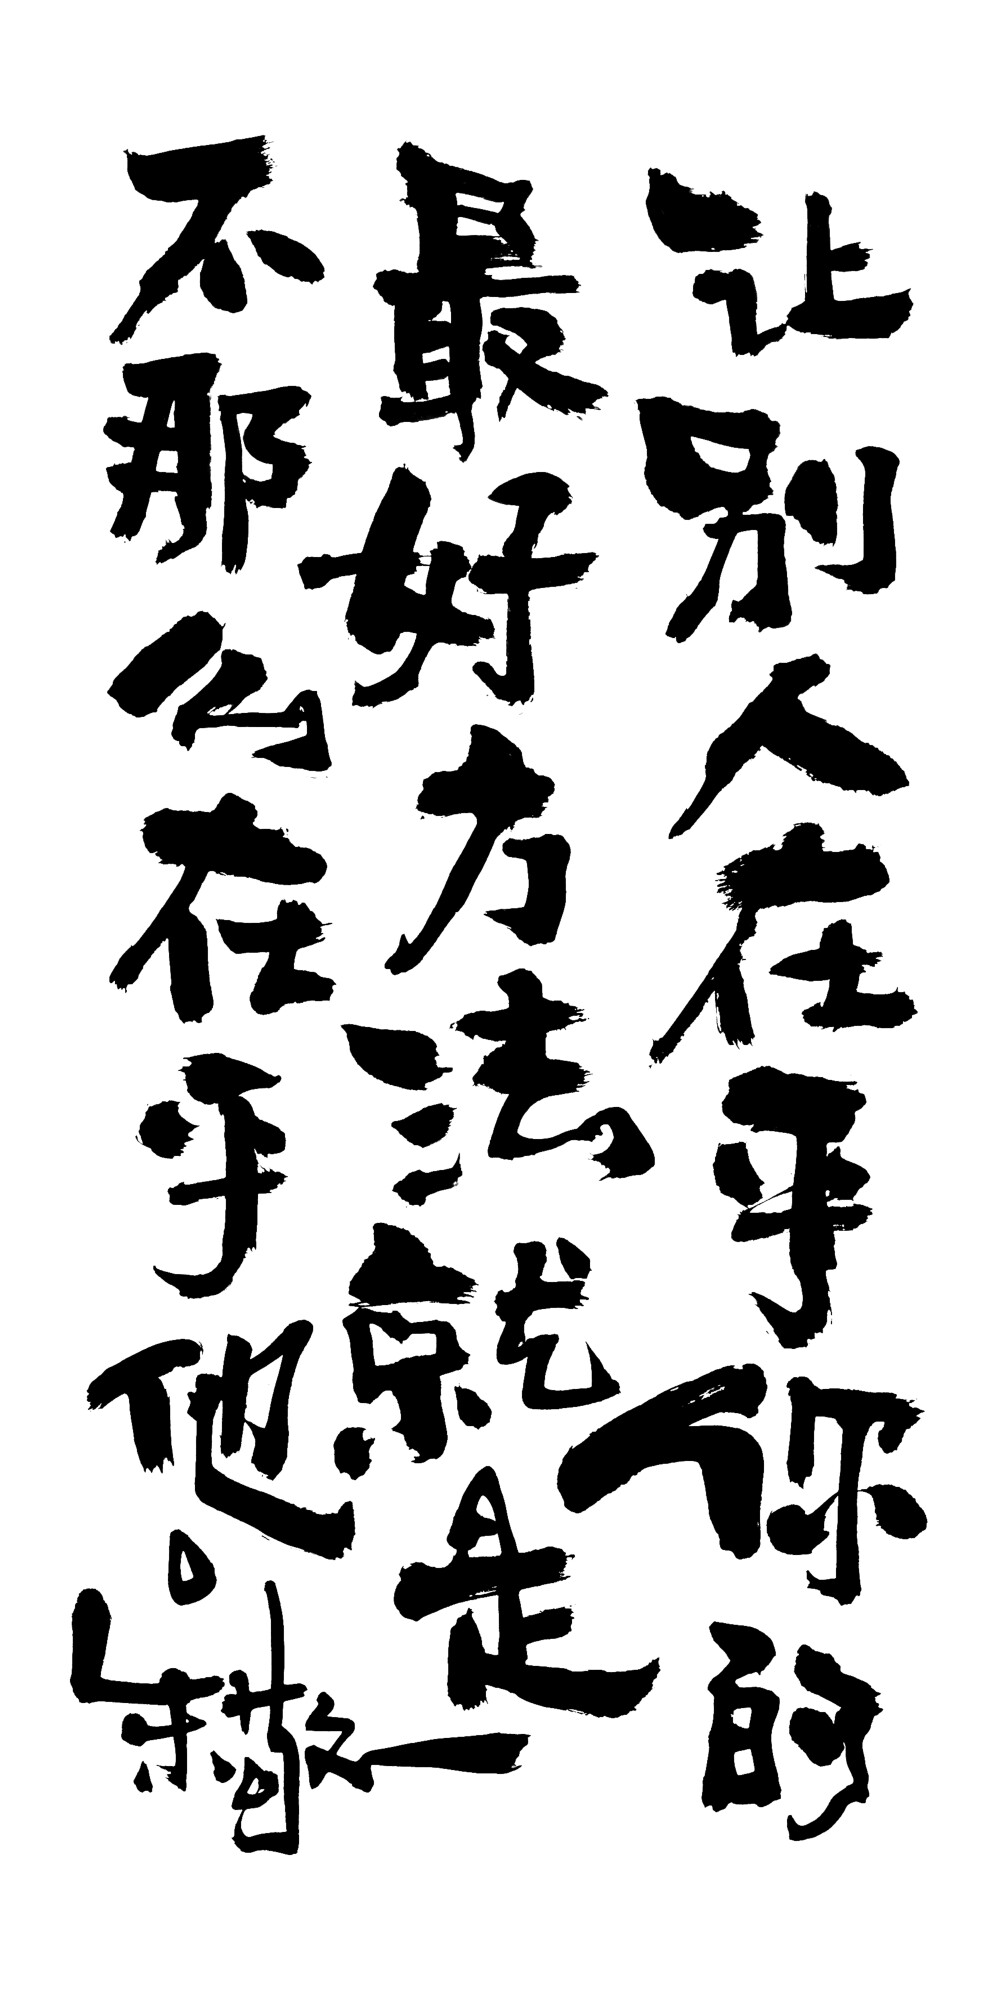 让别人在乎你的
最好方法就是
不那么在乎他。